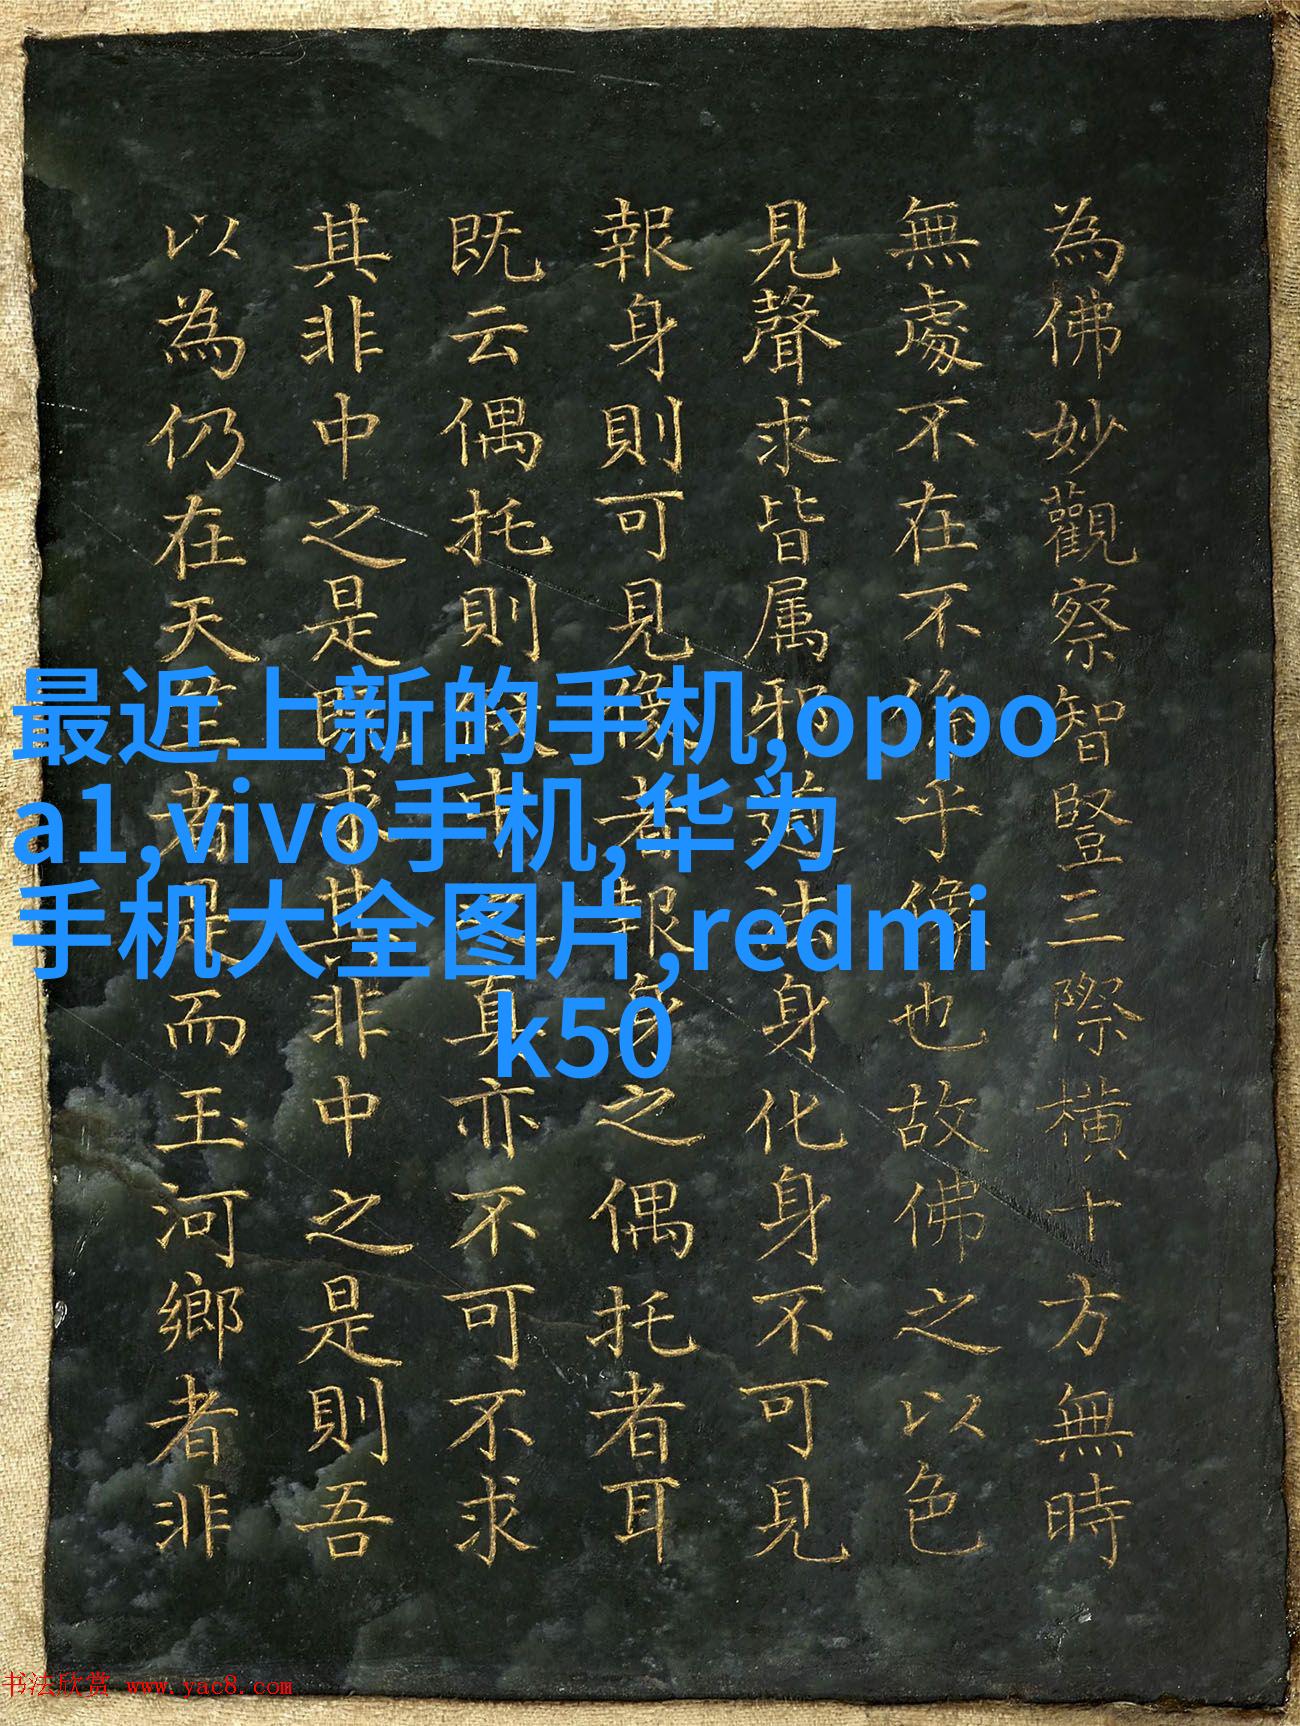 為佛妙觀察智豎三際橫十方無時
無處不在不乎像也故佛之以色
見聲求皆属邪道法身化身不可見
報身則可見像者報身之偶托者耳
既云偶托則中之真亦不可不求
其非中之是既求其非中之是則吾
以為仍在天竺者是而玉河鄉者非
最近上新的手机,oppo
a1,vivo手机,华为
手机大全图片,redmi
k50
书法欣赏 www.yac8.com